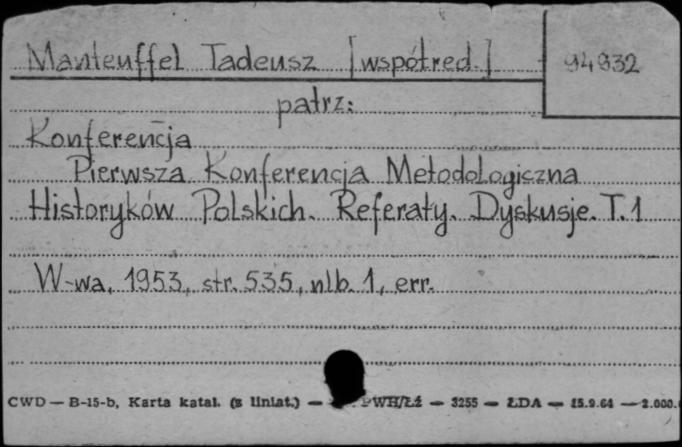 Manteuffel Tadeusz [współred.] 94932
patrz:
Konferencja
Pierwsza Konferencja Metodologiczna
Historyków Polskich. Referaty. Dyskusje. T. 1
W-wa, 1953, str. 535, nlb. 1, err.
CWD — B-15-b, Karta katal. (z liniat.) — PWH/Łź — 3255 — ŁDA — 15.9.64 — 2.000.